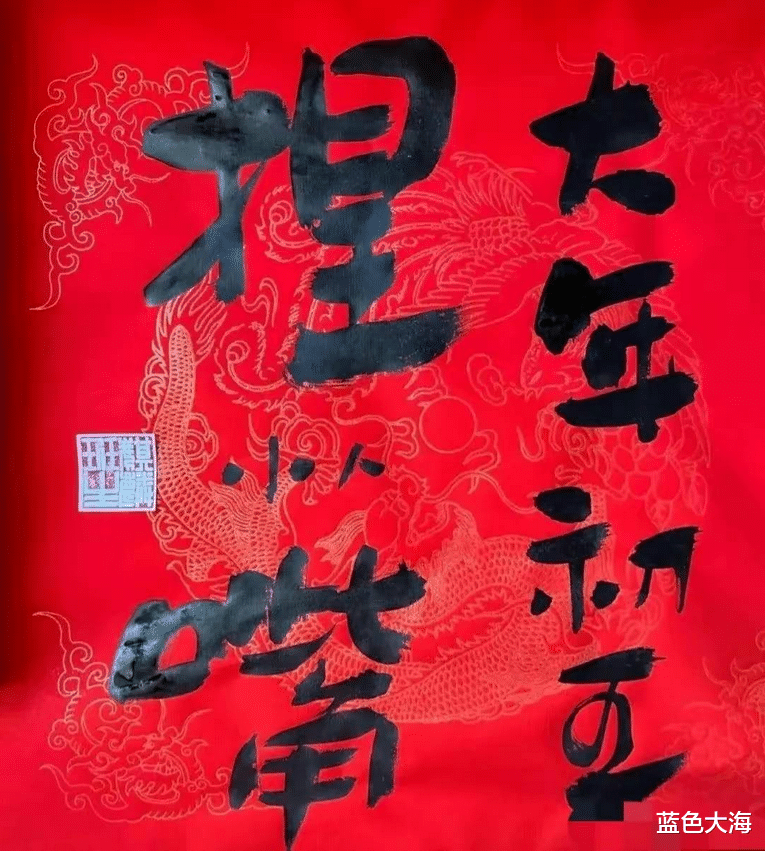 大年初五
捏小人嘴
蓝色大海